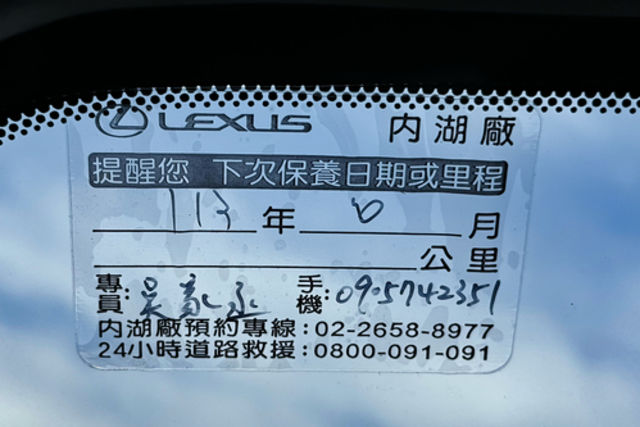 LEXUS 內湖廠
提醒您 下次保養日期或里程
113年 8月
公里
專員:吳 手機:0905742351
內湖廠預約專線:02-2658-8977
24小時道路救援:0800-091-091